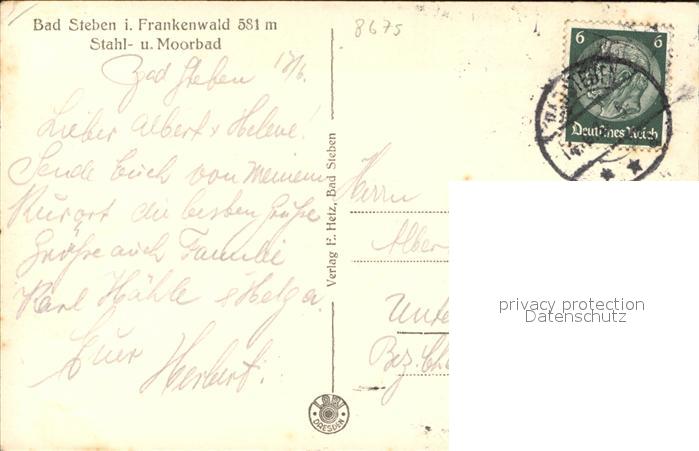 Bad Steben i. Frankenwald 581 m
Stahl- u. Moorbad
8675
Bad Steben 17/6.
Lieber Albert & Helene!
Sende Euch von meinem
Kurort die besten Grüße
Grüße auch Familie
Karl Hähle & Helga.
Euer
Herbert.
Verlag E. Hetz, Bad Steben
DRESDEN
6 6
Deutsches Reich
Herrn
Alber
Unte
Bez. Ch
privacy protection
Datenschutz